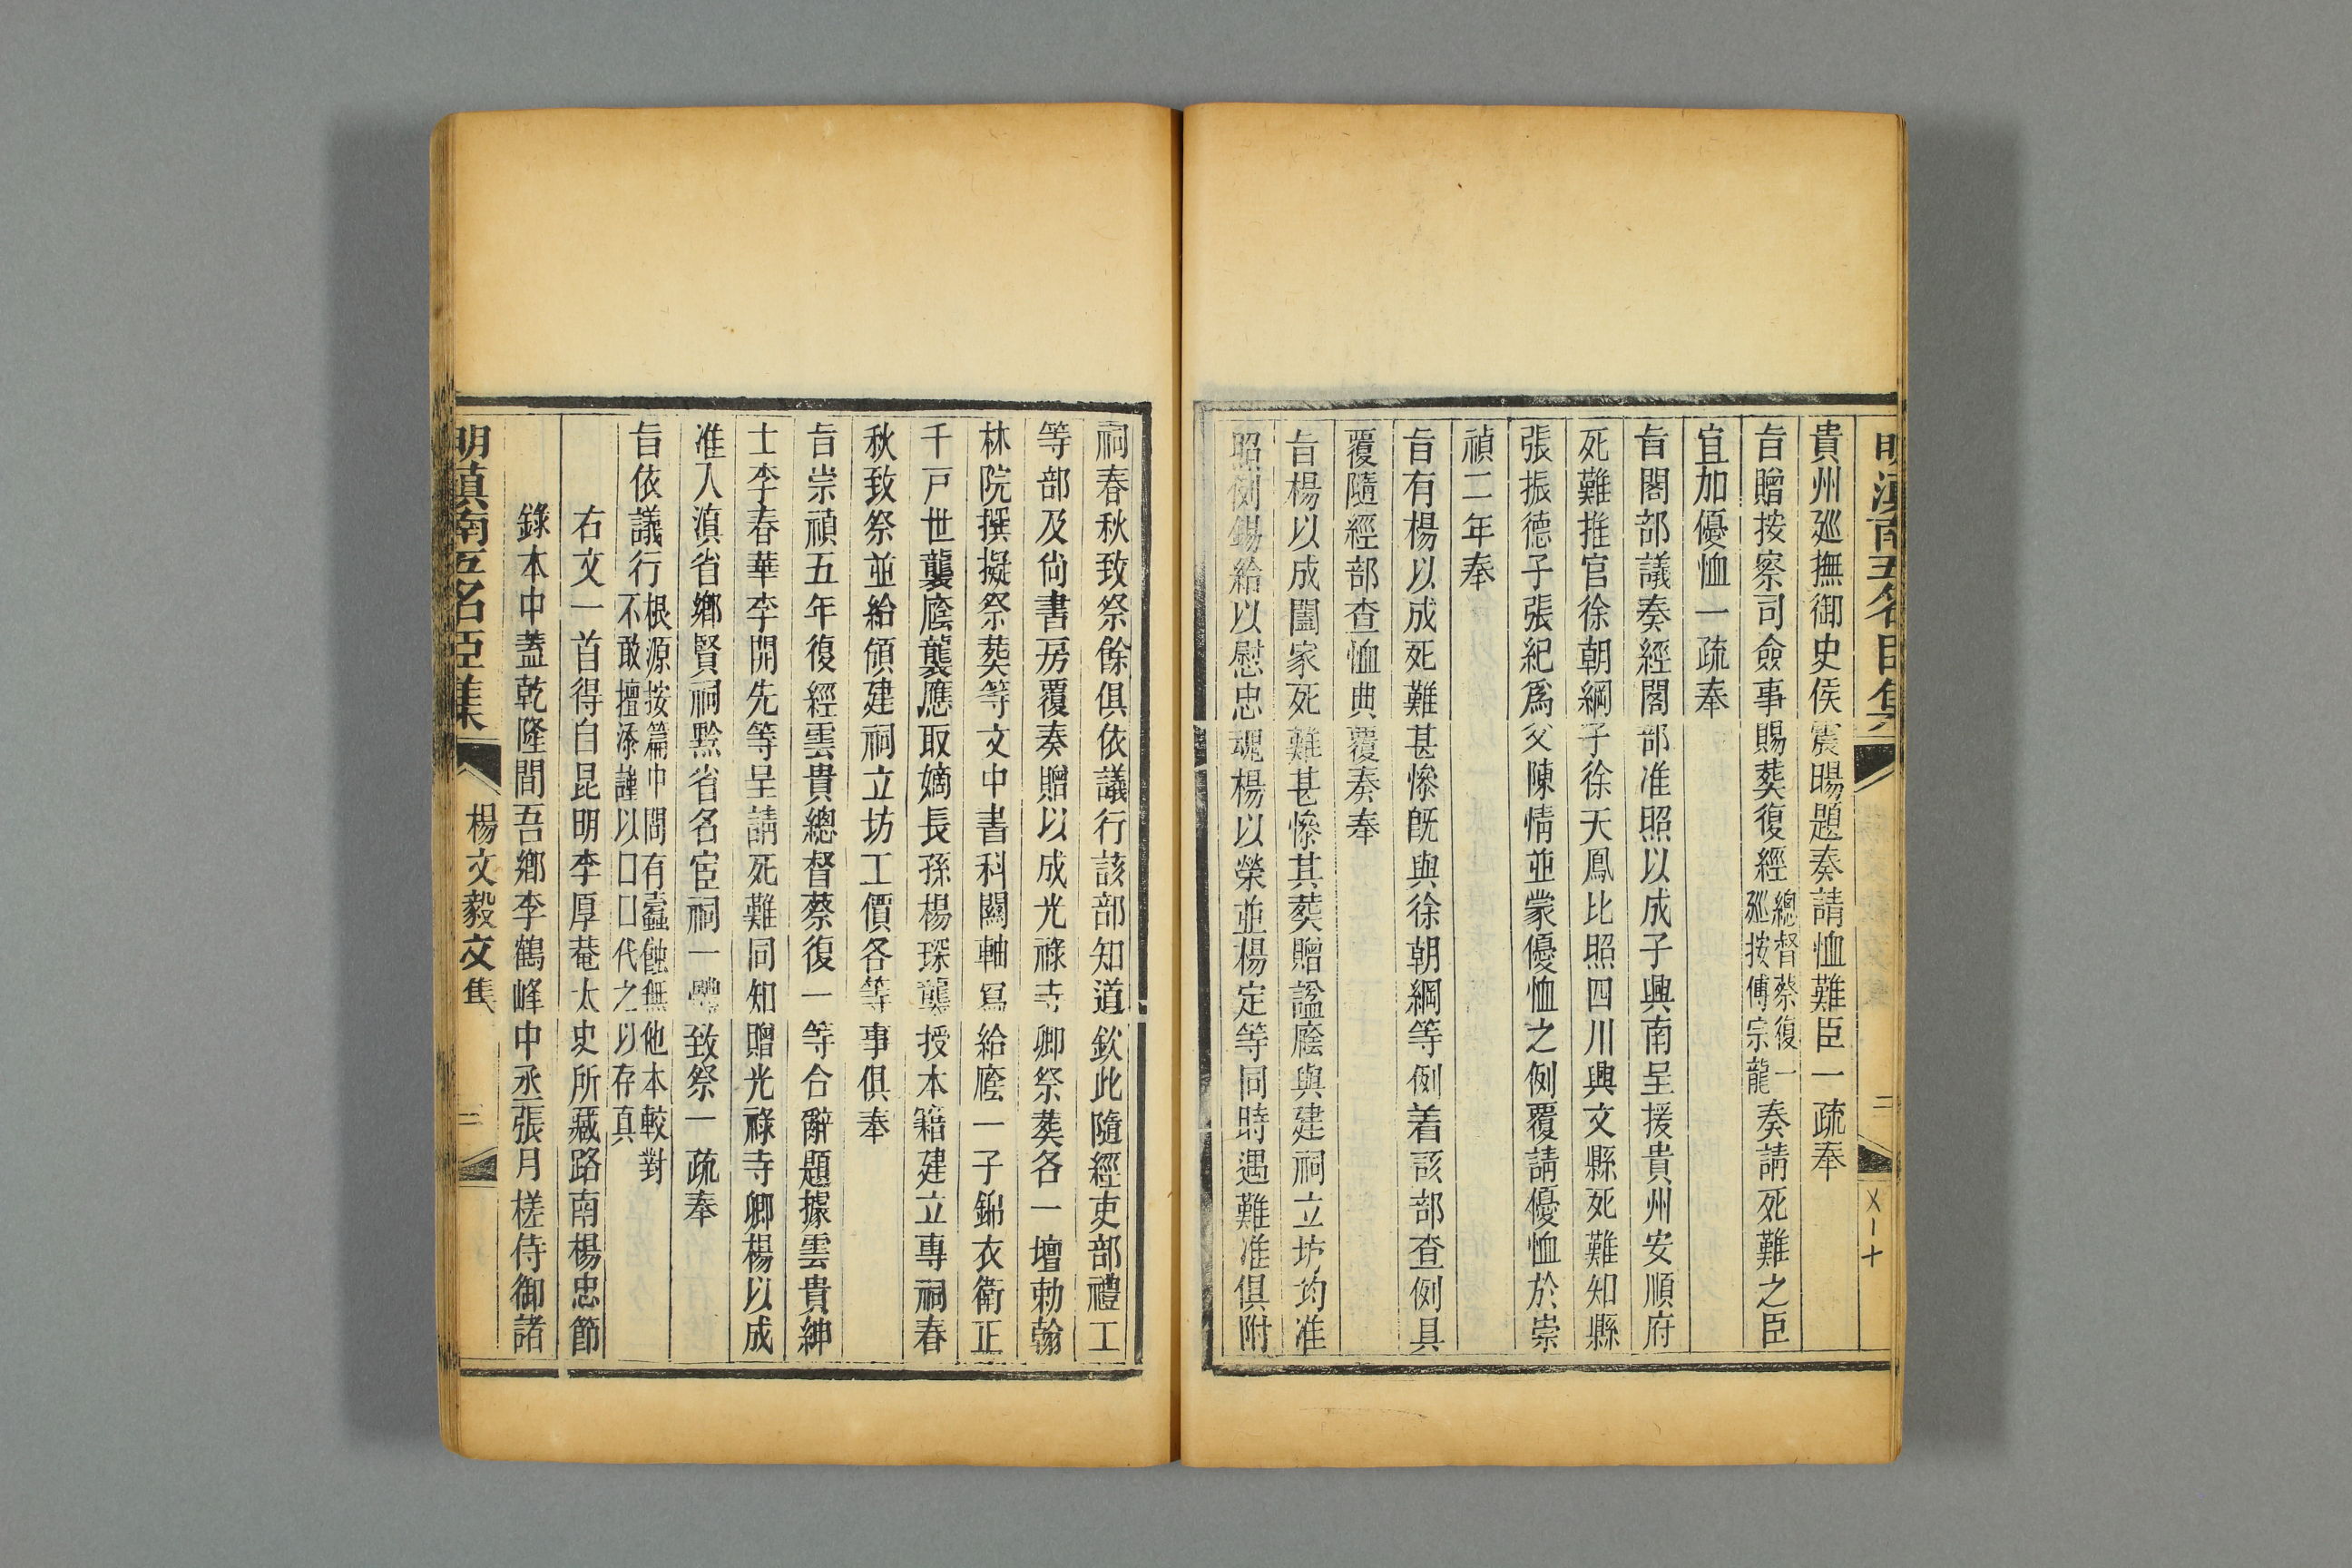 明滇南五名臣集
二
貴州廵撫御史侯震暘題奏請恤難臣一疏奉
旨贈按察司僉事賜葬復經總督蔡復一廵按傅宗龍奏請死難之臣
宜加優恤一疏奉
旨閣部議奏經閣部准照以成子興南呈援貴州安順府
死難推官徐朝綱子徐天鳳比照四川興文縣死難知縣
張振德子張紀爲父陳情並蒙優恤之例覆請優恤於崇
禎二年奉
旨有楊以成死難甚慘旣與徐朝綱等例着該部查例具
覆隨經部查恤典覆奏奉
旨楊以成闔家死難甚慘其葬贈諡廕與建祠立坊均准
照例錫給以慰忠魂楊以榮並楊定等同時遇難准俱附
祠春秋致祭餘俱依議行該部知道欽此隨經吏部禮工
等部及尙書房覆奏贈以成光祿寺卿祭葬各一壇勅翰
林院撰擬祭葬等文中書科關軸寫給廕一子錦衣衛正
千戸世襲廕襲應取嫡長孫楊琛襲授本籍建立專祠春
秋致祭並給頒建祠立坊工價各等事俱奉
旨崇禎五年復經雲貴總督蔡復一等合辭題據雲貴紳
士李春華李開先等呈請死難同知贈光祿寺卿楊以成
准入滇省鄉賢祠黔省名宦祠一體致祭一疏奉
旨依議行根源按篇中間有蠹蝕無他本較對不敢擅添謹以口口代之以存真
右文一首得自昆明李厚菴太史所藏路南楊忠節
錄本中蓋乾隆間吾鄉李鶴峰中丞張月槎侍御諸
明滇南五名臣集
楊文毅文集
三